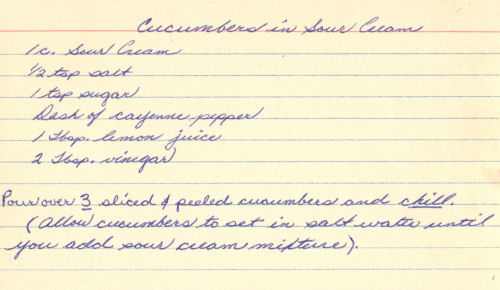 Cucumbers in Sour Cream
1 c. Sour Cream
1/2 tsp salt
1 tsp sugar
Dash of cayenne pepper
1 Tbsp. lemon juice
2 Tbsp. vinegar
Pour over 3 sliced & peeled cucumbers and chill.
(Allow cucumbers to set in salt water until
you add sour cream mixture).